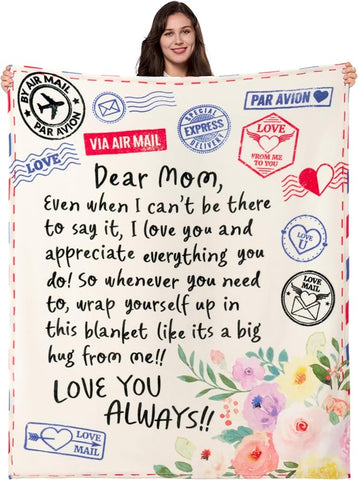 BY AIR MAIL
PAR AVION
SPECIAL
EXPRESS
DELIVERY
PAR AVION
VIA AIR MAIL
LOVE
FROM ME
TO YOU
LOVE
Dear Mom,
Even when I can't be there
to say it, I love you and
appreciate everything you
do! So whenever you need
to, wrap yourself up in
this blanket like its a big
hug from me!!
LOVE YOU
ALWAYS!!
LOVE
U
LOVE MAIL
LOVE
MAIL